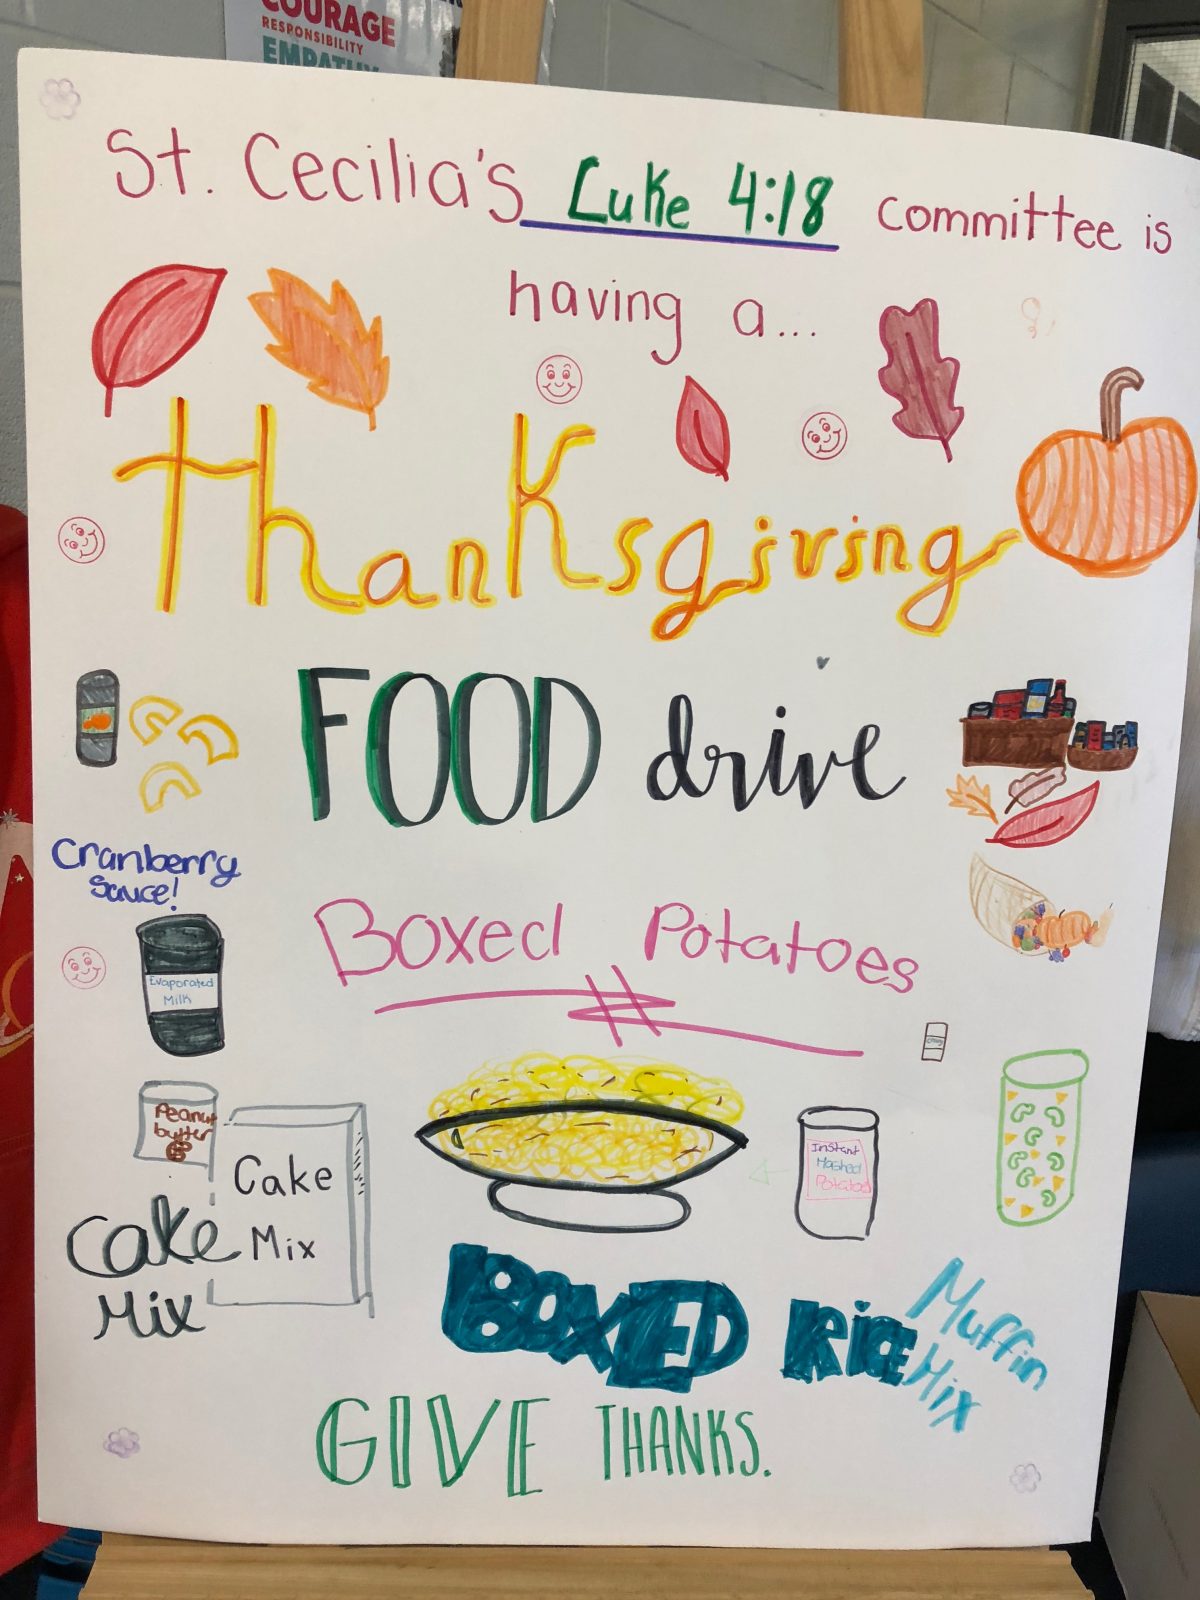 COURAGE
RESPONSIBILITY
EMPATHY
St. Cecilia's Luke 4:18 committee is
having a...
Thanksgiving
FOOD drive
Cranberry
Sauce!
Boxed Potatoes
Evaporated
Milk
Peanut
butter
Cake
Mix
Cake
Mix
Instant
Mashed
Potatoes
BOXED RICE
Muffin
Mix
GIVE THANKS.